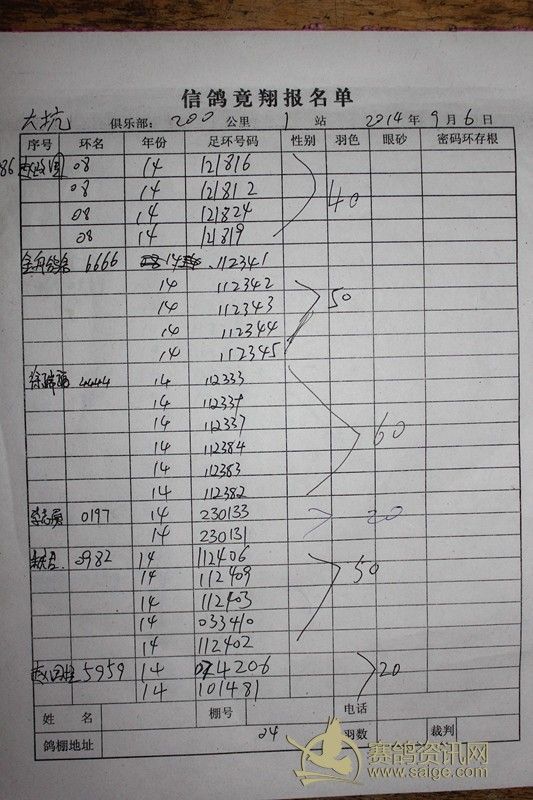 信鸽竞翔报名单
大坑 俱乐部： 200 公里 1 站 2014 年 9 月 6 日
序号 环名 年份 足环号码 性别 羽色 眼砂 密码环存根
08 14 121816
08 14 121812
08 14 121824 40
08 14 121819
6666 14 112341
14 112342
14 112343 50
14 112344
14 112345
4444 14 112333
14
14 112337 60
14 112384
14 112383
14 112382
0197 14 230133 20
14 230131
0982 14 112406
14 112409 50
14 112403
14 033410
14 112402
5959 14 074206 20
14 101481
姓名 棚号 电话
鸽棚地址 24 羽数 裁判
赛鸽资讯网
www.saige.com